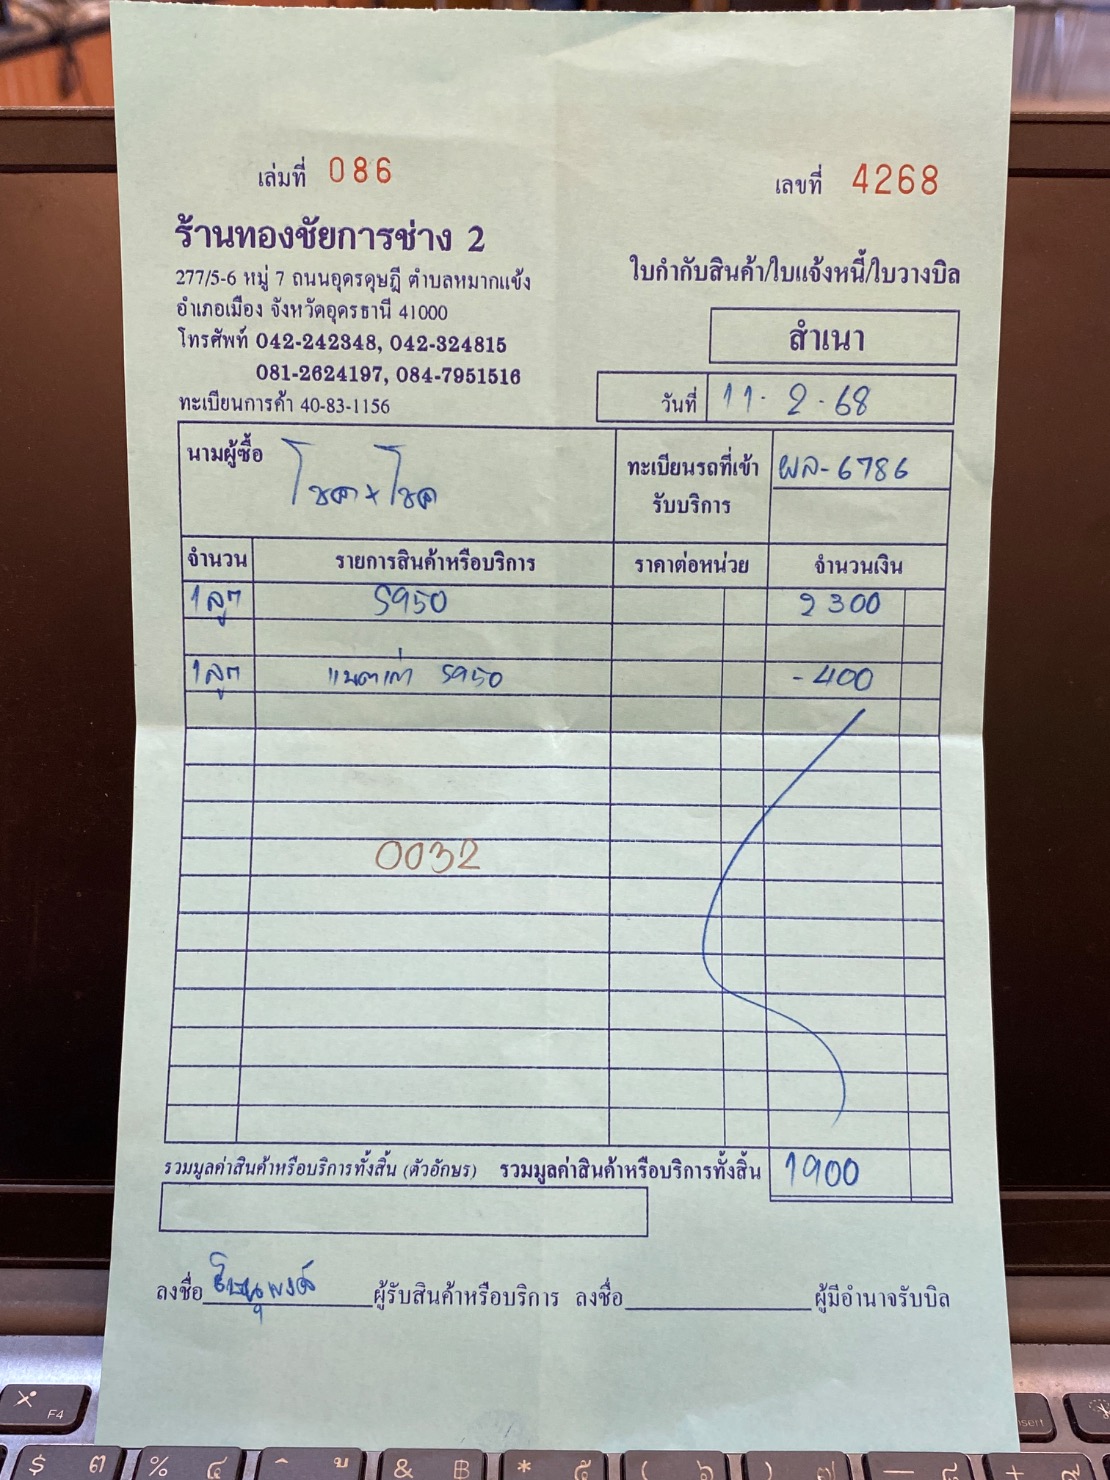 เล่มที่ 086
เลขที่ 4268
ร้านทองชัยการช่าง 2
277/5-6 หมู่ 7 ถนนอุดรดุษฎี ตำบลหมากแข้ง
อำเภอเมือง จังหวัดอุดรธานี 41000
โทรศัพท์ 042-242348, 042-324815
081-2624197, 084-7951516
ทะเบียนการค้า 40-83-1156
ใบกำกับสินค้า/ใบแจ้งหนี้/ใบวางบิล
สำเนา
วันที่ 11-2-68
นามผู้ซื้อ โชค+โชค
ทะเบียนรถที่เข้า ผล-6786
รับบริการ
จำนวน รายการสินค้าหรือบริการ ราคาต่อหน่วย จำนวนเงิน
1ลูก S950 2300
1ลูก แบตเก่า S950 -400
0032
รวมมูลค่าสินค้าหรือบริการทั้งสิ้น (ตัวอักษร) รวมมูลค่าสินค้าหรือบริการทั้งสิ้น 1900
ลงชื่อ ผู้รับสินค้าหรือบริการ ลงชื่อ ผู้มีอำนาจรับบิล
F4
$ ๓ % ๔ ข & ฿ * ๕ ( ๖ ) ๗ — ๘ + ๙